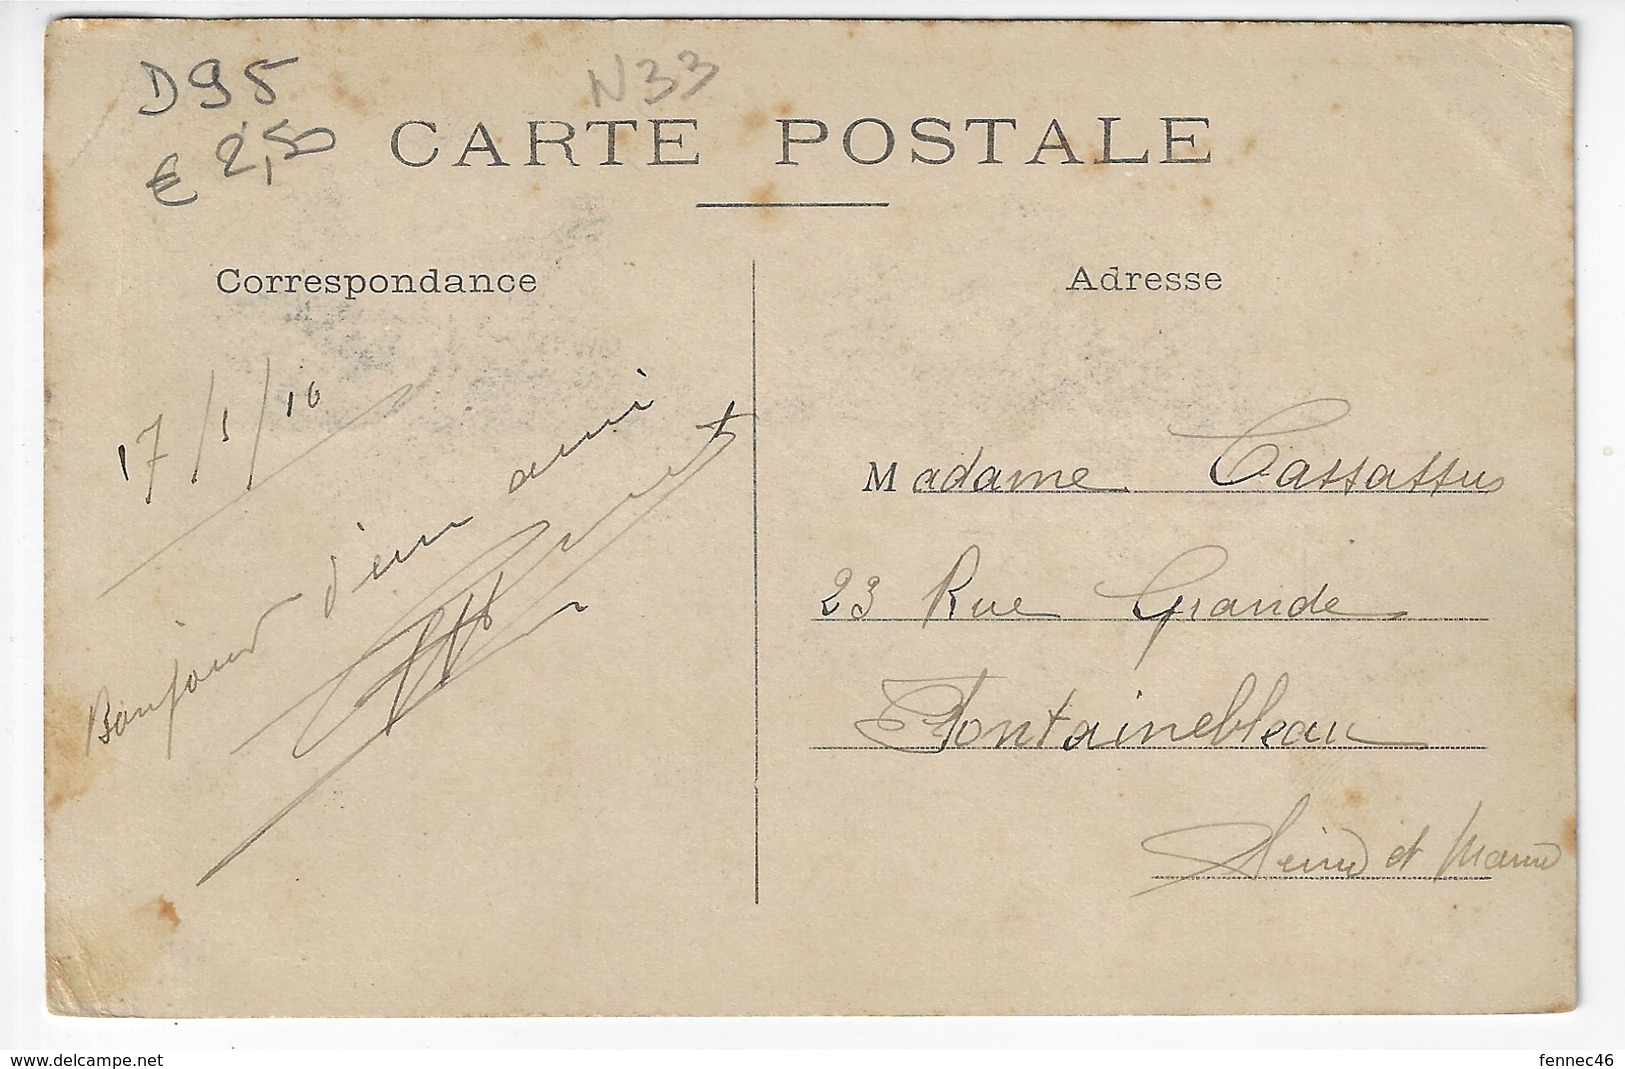 D95
€ 2,50
N33
CARTE POSTALE
Correspondance
Adresse
17/1/10
Bonjour d'un ami
Madame Cassassus
23 Rue Grande
Fontainebleau
Seine et Marne
www.delcampe.net
fennec46